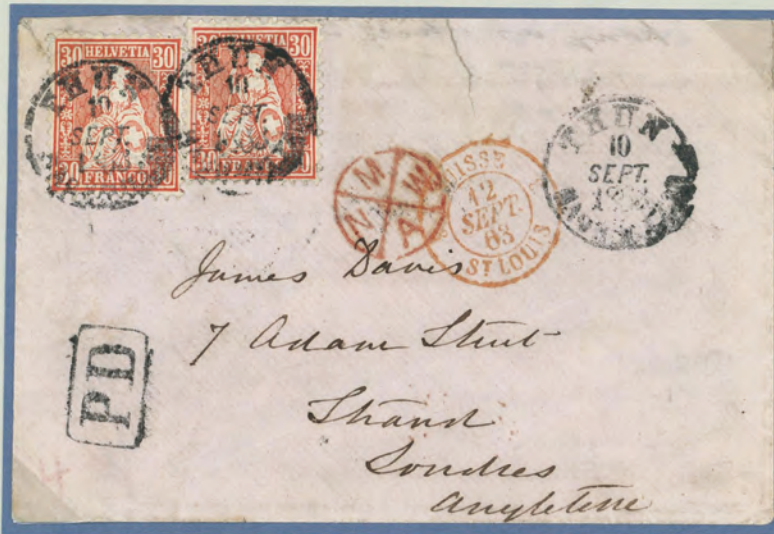 30 HELVETIA 30
30 FRANCO 30
30 HELVETIA 30
30 FRANCO
THUN
10
SEPT.
THUN
10
SEPT.
M W
A
SUISSE
12
SEPT.
63
ST LOUIS
THUN
10
SEPT.
James Davis
7 Adam Street
Strand
Londres
Angleterre
PD